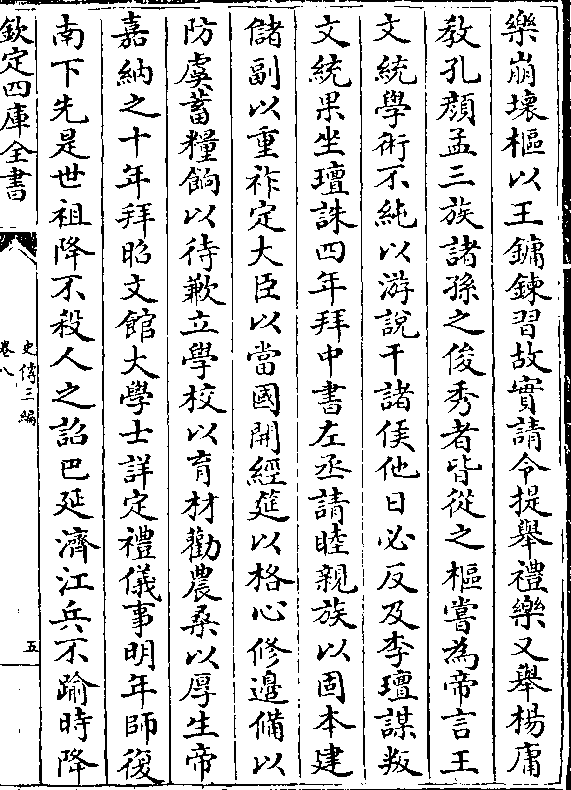 樂崩壞樞以王鏞鍊習故實請令提舉禮樂又舉楊庸
教孔顔孟三族諸孫之俊秀者皆從之樞嘗為帝言王
文統學術不純以游說干諸侯他日必反及李璮謀叛
文統果坐璮誅四年拜中書左丞請睦親族以固本建
儲副以重祚定大臣以當國開經筵以格心修邊備以
防虞蓄糧餉以待歉立學校以育材勸農桑以厚生帝
嘉納之十年拜昭文館大學士詳定禮儀事明年師復
南下先是世祖降不殺人之詔巴延濟江兵不踰時降
欽定四庫全書
史傳三編
卷八
五